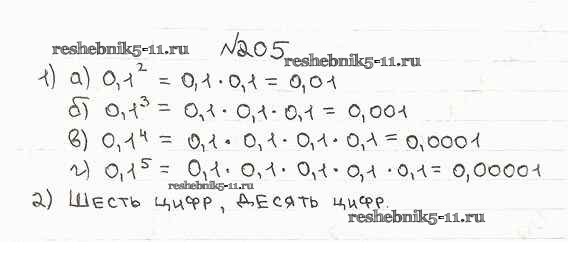 reshebnik5-11.ru №205 reshebnik5-11.ru
1) а) 0,1² = 0,1 · 0,1 = 0,01
б) 0,1³ = 0,1 · 0,1 · 0,1 = 0,001
в) 0,1⁴ = 0,1 · 0,1 · 0,1 · 0,1 = 0,0001
г) 0,1⁵ = 0,1 · 0,1 · 0,1 · 0,1 · 0,1 = 0,00001
reshebnik5-11.ru
2) Шесть цифр, десять цифр.
reshebnik5-11.ru